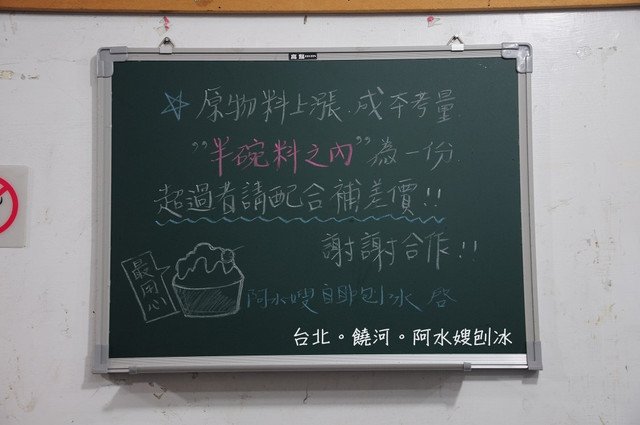 ☆原物料上漲.成本考量
"半碗料之內"為一份
超過者請配合補差價!!
謝謝合作!!
最用心
阿水嫂自助刨冰 啓
台北。饒河。阿水嫂刨冰